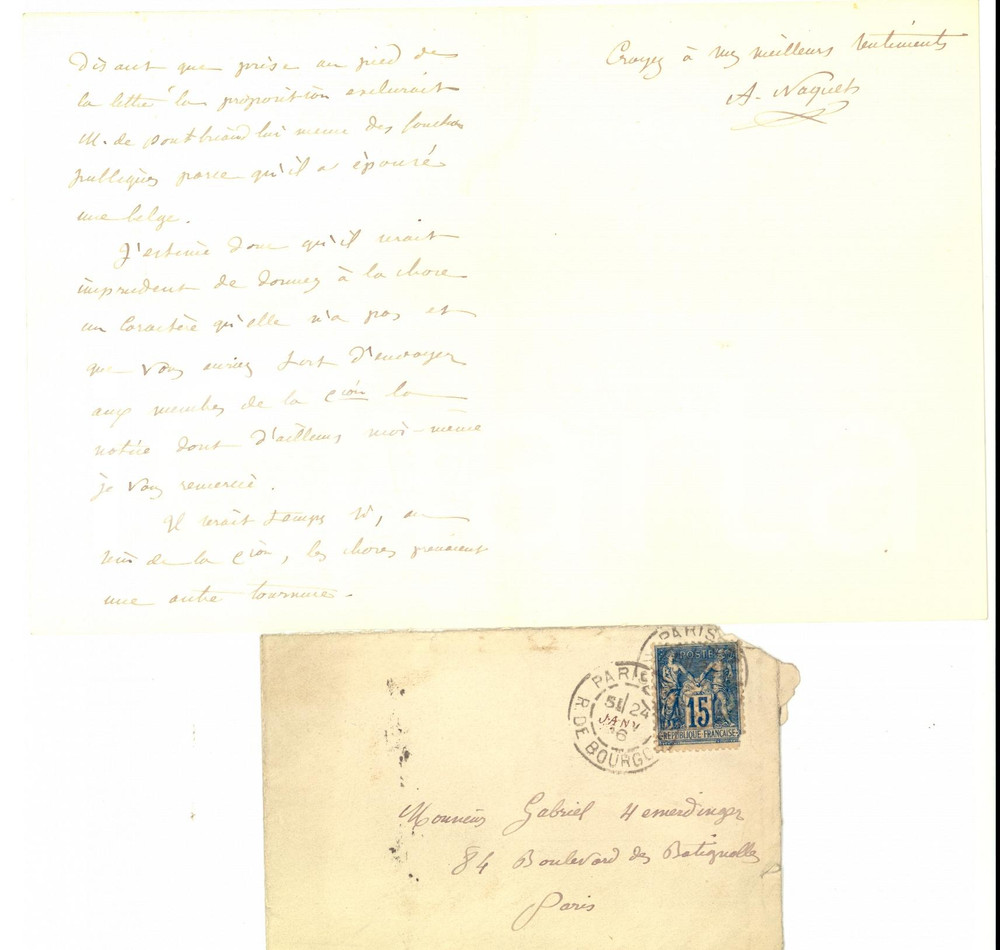 Disant que prise au pied de
la lettre la proposition exclurait
M. de Pontbriand lui meme des fonctions
publiques parce qu'il a épousé
une belge.
J'estime donc qu'il serait
imprudent de donner à la chose
un caractère qu'elle n'a pas et
que vous auriez tort d'envoyer
aux membres de la Cion la
notice dont d'ailleurs moi-même
je vous remercie.
Il serait temps si, au
sein de la Cion, les choses prenaient
une autre tournure.
Croyez à mes meilleurs sentiments
A. Naquet
PARIS
PARIS
24
JANV
R. DE BOURGO
POSTES
15
REPUBLIQUE FRANÇAISE
Monsieur Gabriel Hemerdinger
84 Boulevard des Batignolles
Paris